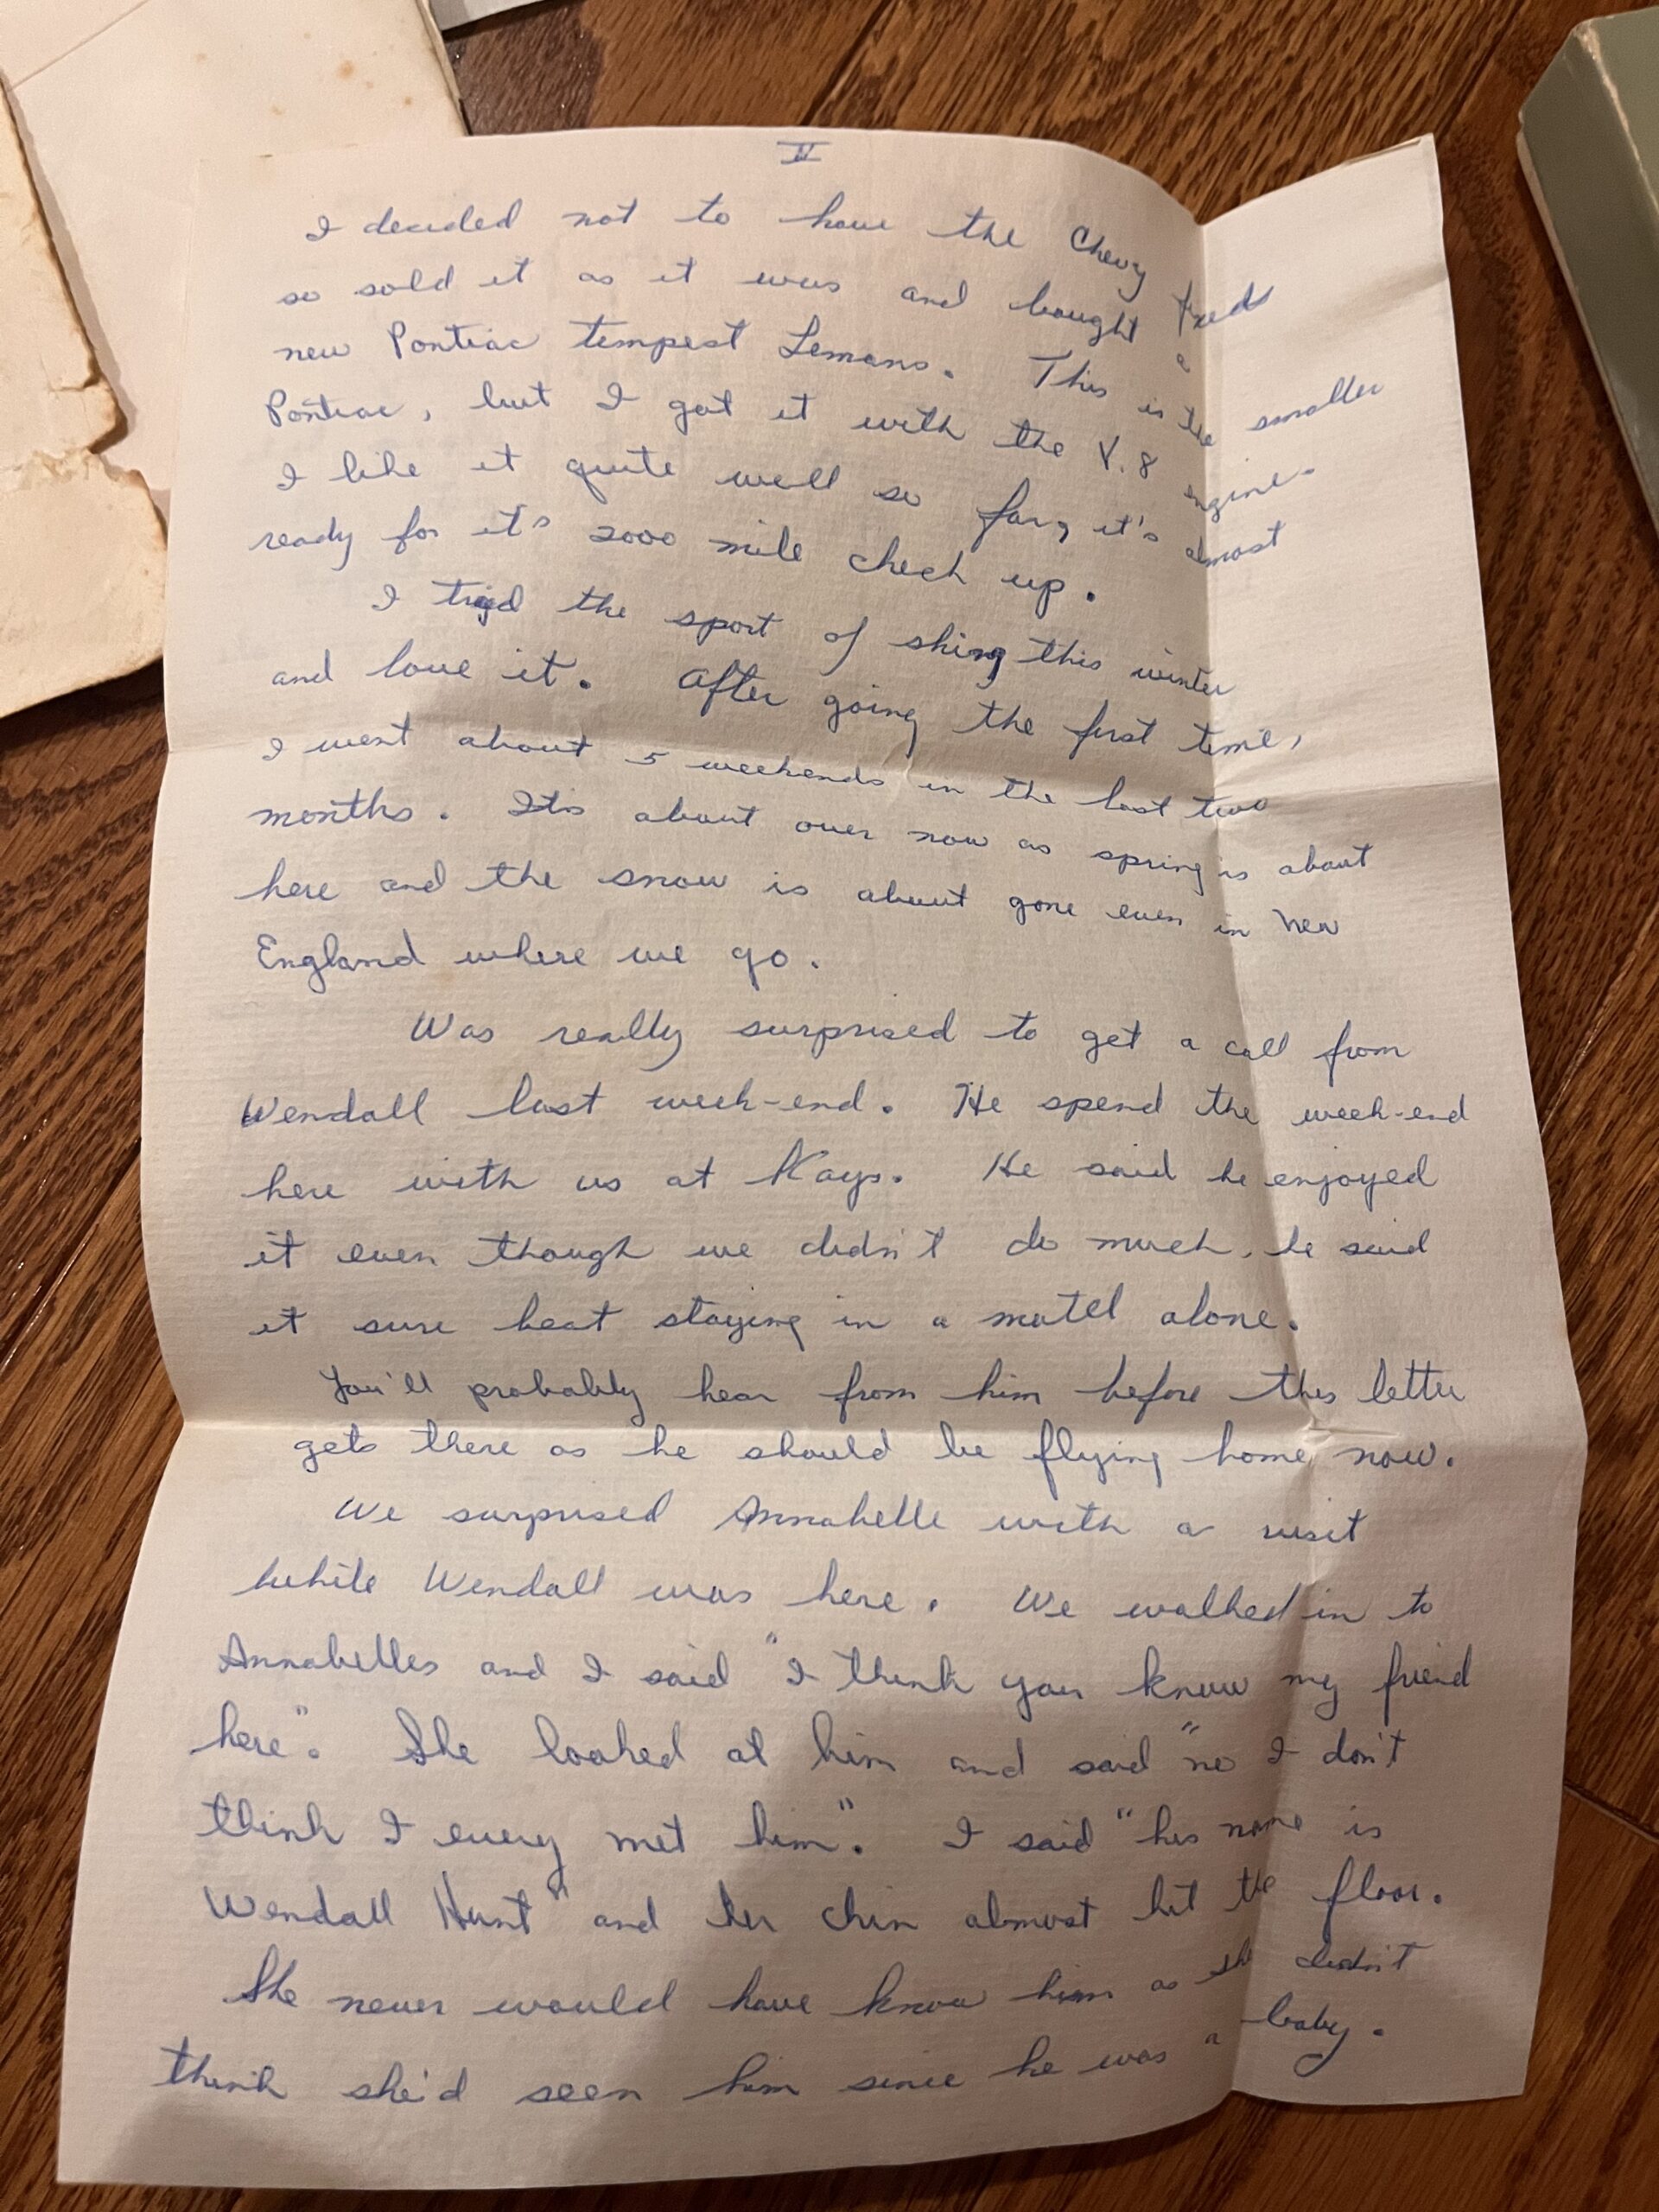 II
I decided not to have the Chevy fixed
so sold it as it was and bought a
new Pontiac tempest Lemans. This is the smaller
Pontiac, but I got it with the V.8 engine.
I like it quite well so far, it's almost
ready for it's 2000 mile check up.
I tryed the sport of skiing this winter
and love it. After going the first time,
I went about 5 weekends in the last two
months. Its about over now as spring is about
here and the snow is about gone even in New
England where we go.
Was really surprised to get a call from
Wendall last week-end. He spend the week-end
here with us at Kays. He said he enjoyed
it even though we didn't do much, he said
it sure beat staying in a motel alone.
You'll probably hear from him before this letter
gets there as he should be flying home now.
We surprised Annabelle with a visit
while Wendall was here. We walked in to
Annabelles and I said "I think you know my friend
here". She looked at him and said "no I don't
think I every met him". I said "his name is
Wendall Hunt" and her chin almost hit the floor.
She never would have know him as she didn't
think she'd seen him since he was a baby.